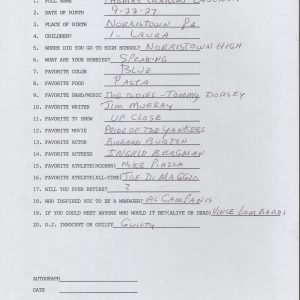 1. FULL NAME Thomas Charles Lasorda
2. DATE OF BIRTH 9-22-27
3. PLACE OF BIRTH Norristown Pa.
4. CHILDREN? 1- Laura
5. WHERE DID YOU GO TO HIGH SCHOOL? Norristown High
6. WHAT ARE YOUR HOBBIES? Speaking
7. FAVORITE COLOR Blue
8. FAVORITE FOOD Pasta
9. FAVORITE BAND/MUSIC The oldies - Tommy Dorsey
10. FAVORITE WRITER Jim Murray
11. FAVORITE TV SHOW Up Close
12. FAVORITE MOVIE Pride of the Yankees
13. FAVORITE ACTOR Richard Burton
14. FAVORITE ACTRESS Ingrid Bergman
15. FAVORITE ATHLETE(MODERN) Mike Piazza
16. FAVORITE ATHLETE(ALL-TIME) Joe DiMaggio
17. WILL YOU EVER RETIRE? ?
18. WHO INSPIRED YOU TO BE A MANAGER? Al Campanis
19. IF YOU COULD MEET ANYONE WHO WOULD IT BE?(ALIVE OR DEAD) Vince Lombardi
20. O.J. INNOCENT OR GUILTY Guilty
AUTOGRAPH
DATE